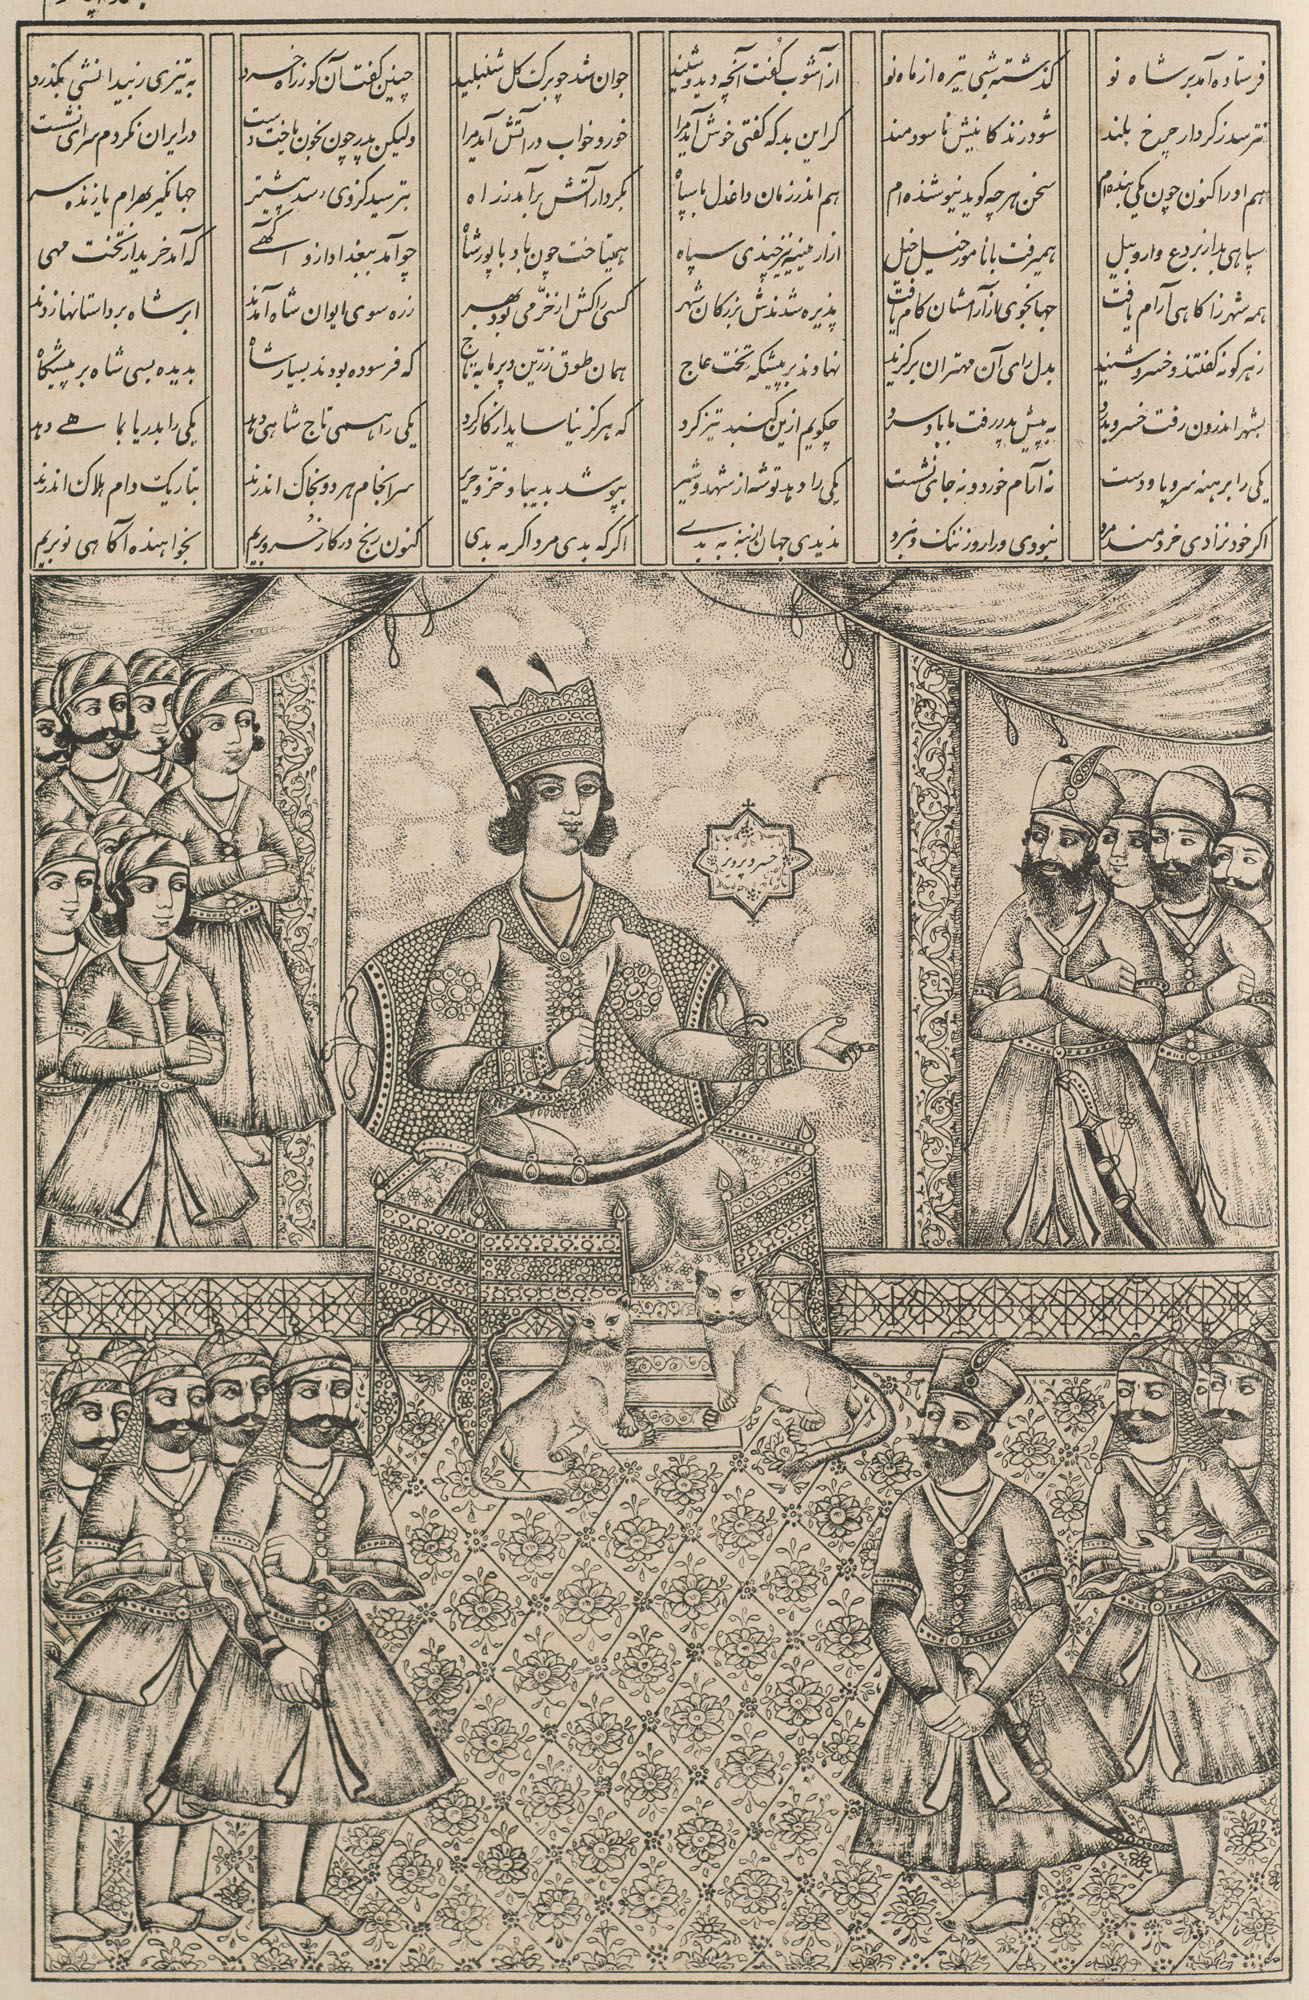 فرستاده آمد بر شاه نو گذشته شبی تیره از ماه نو ز آشوب گفت آنچه دید و شنید جوان شد چو برگ گل شنبلید چنین گفت آن کو ز راه خرد به تیزی ز بیدانشی بگذرد
نترسد ز کردار چرخ بلند شود زندگانیش ناسودمند گر این بد که گفتی خوش آید مرا خور و خواب در آتش آید مرا ولیکن پدر چون بخون باخت دست در ایران نکردم سرای نشست
هم او را کنون چون یکی بنده‌ام سخن هرچه گوید نیوشنده‌ام هم اندر زمان داغدل با سپاه بکردار آتش برآمد ز راه بترسید کز وی رسد پیشتر جهانگیر بهرام یازنده سر
سپاهی بد از بردع و اردبیل همیرفت با نامور خیل خیل از ارمینیه نیز چندی سپاه همیتاخت چون باد با پور شاه چو آمد ببغداد ازو آگهی که آمد خریدار تخت مهی
همه شهر ز آگاهی آرام یافت جهانجوی از آرامشان کام یافت پذیره شدندش بزرگان شهر کسی را کش از خرمی بود بهر زره سوی ایوان شاه آمدند ابر شاه بر داستانها زدند
نهادند بر پیشگه تخت عاج همان طوق زرین و پرمایه تاج
ز هر گونه گفتند و خسرو شنید بدل رای آن مهتران برگزید که فرسوده بودند بسیار شاه بدیده بسی شاه بر پیشگاه
بشهر اندرون رفت خسرو بدرد به پیش پدر رفت با باد سرد چگویم ازین گنبد تیزگرد که هرگز نیاساید از کارکرد یکی را همی تاج شاهی دهد یکی را بدریا بماهی دهد
یکی را برهنه سر و پا و دست نه آرام خورد و نه جای نشست یکی را دهد توشه از شهد و شیر بپوشد بدیبا و خز و حریر سرانجام هر دو بخاک اندرند بتاریک دام هلاک اندرند
اگر خود نزادی خردمند مرد نبودی ورا روز ننگ و نبرد ندیدی جهان از بنه به بدی اگر که بدی مرد اگر مه بدی کنون رنج در کار خسرو بریم بخواهنده آگاهی نو بریم
خسرو پرویز